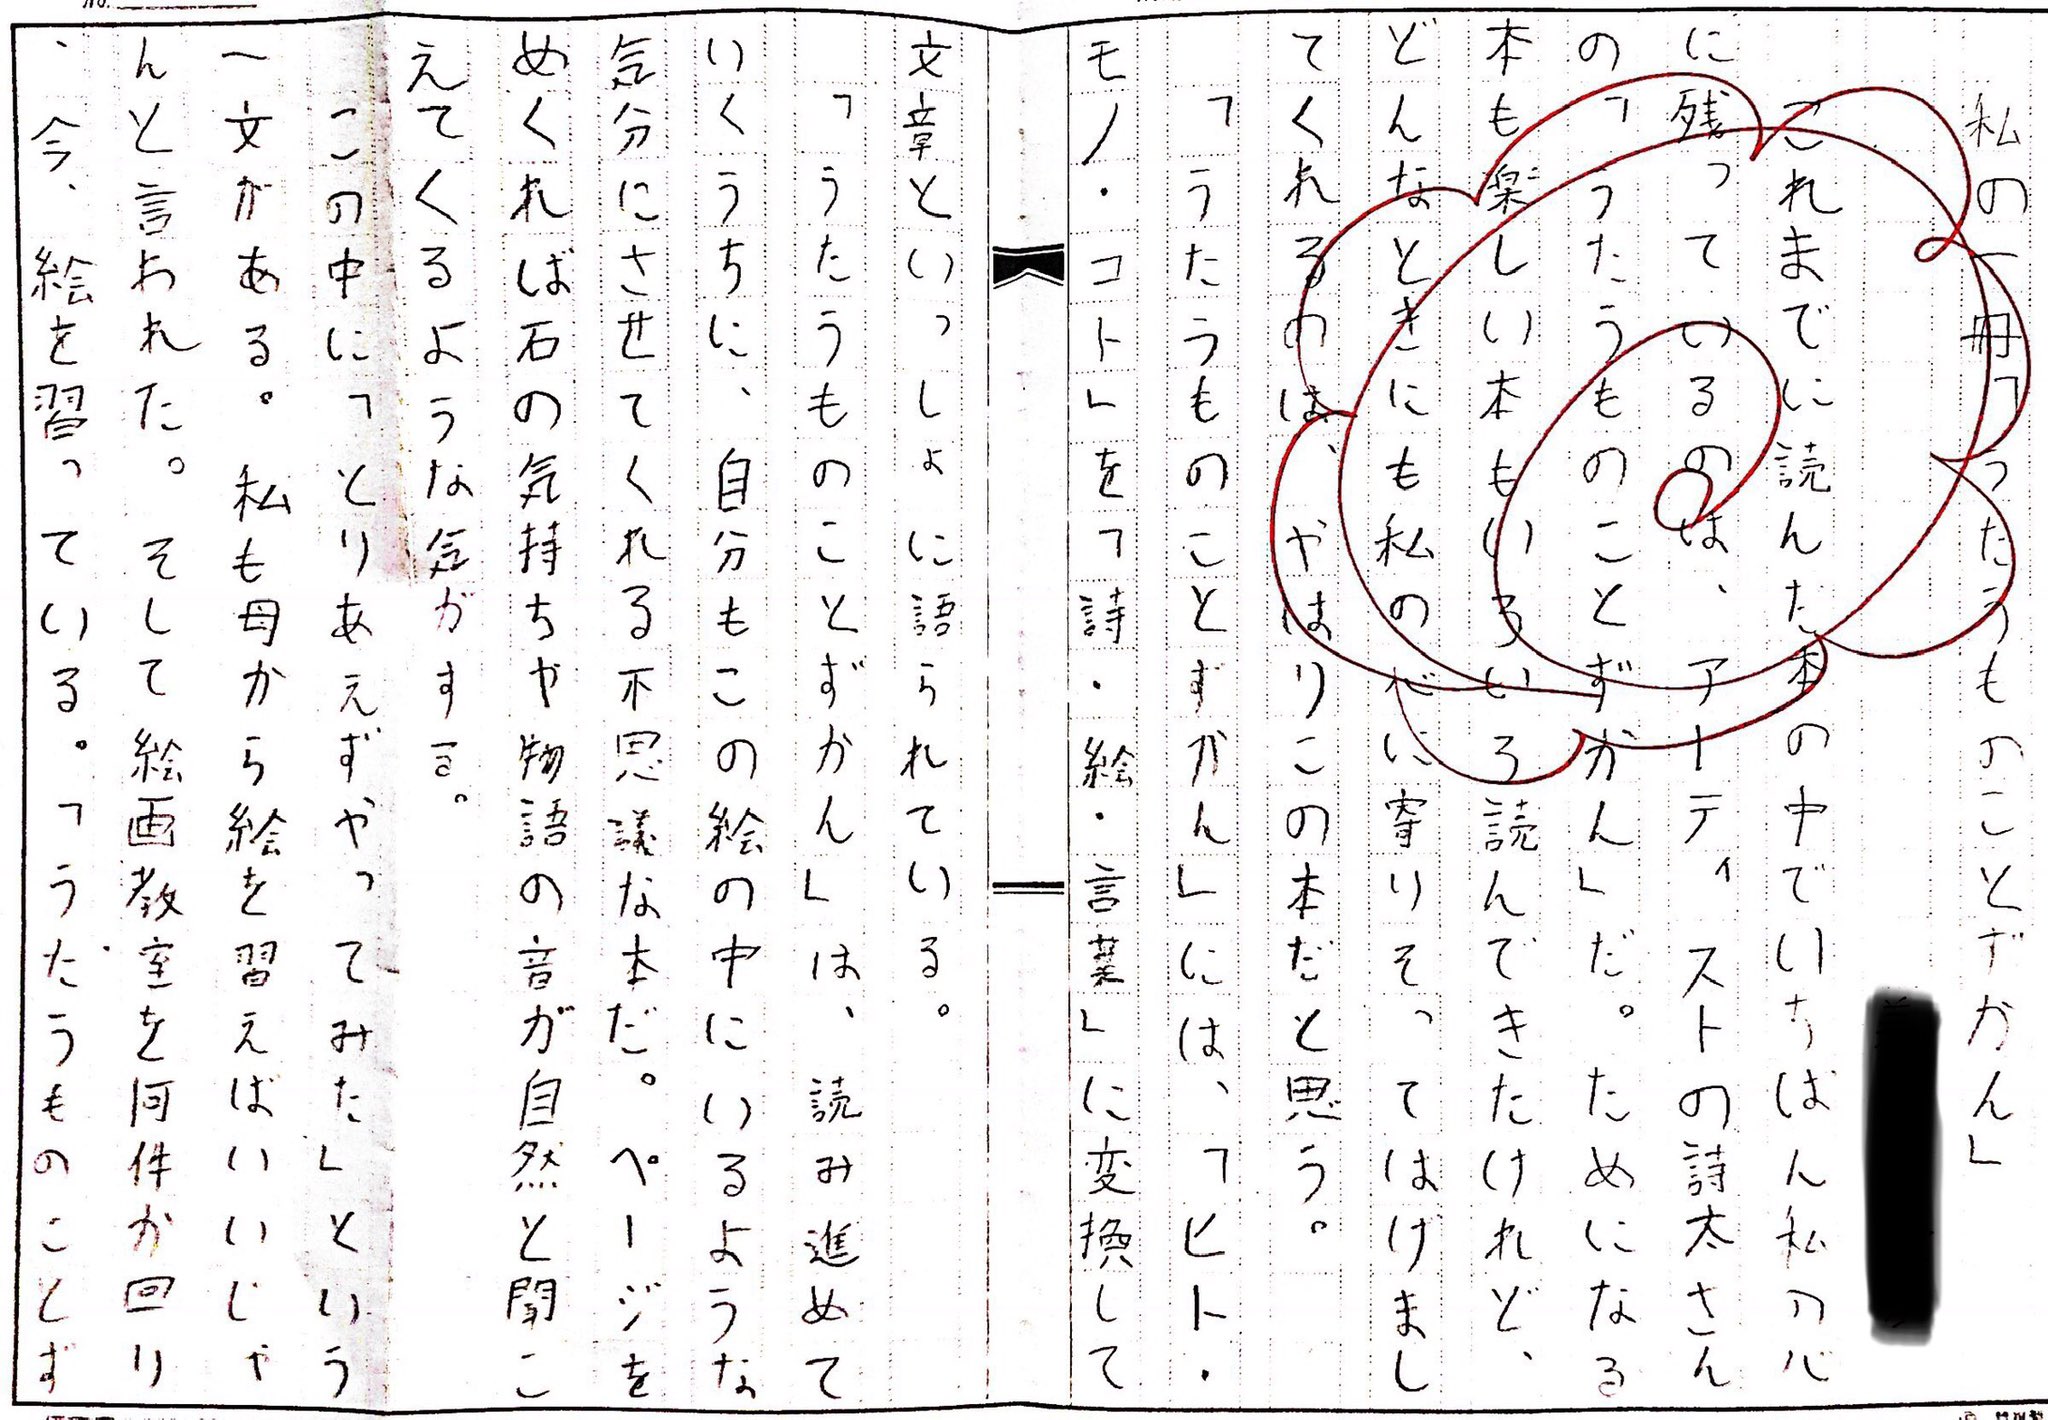 私の一冊「うたうものことずかん」
これまでに読んだ本の中でいちばん私の心
に残っているのは、アーティストの詩太さん
の「うたうものことずかん」だ。ためになる
本も楽しい本もいろいろ読んできたけれど、
どんなときにも私の心に寄りそってはげまし
てくれるのは、やはりこの本だと思う。
「うたうものことずかん」には、「ヒト・
モノ・コト」を「詩・絵・言葉」に変換して
文章といっしょに語られている。
「うたうものことずかん」は、読み進めて
いくうちに、自分もこの絵の中にいるような
気分にさせてくれる不思議な本だ。ページを
めくれば石の気持ちや物語の音が自然と聞こ
えてくるような気がする。
この中に「とりあえずやってみた」という
一文がある。私も母から絵を習えばいいじゃ
んと言われた。そして絵画教室を何件か回り
、今、絵を習っている。「うたうものことず